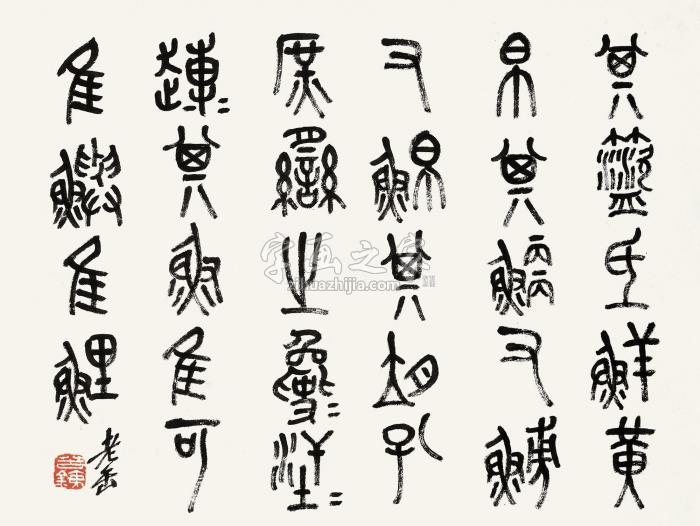 其籃氐鮮黃
帛其鯾又
又鮊其胡孔
庶臠之
其魚隹可
隹鱮隹鯉
老缶
字画之家
zihuazhijia.com